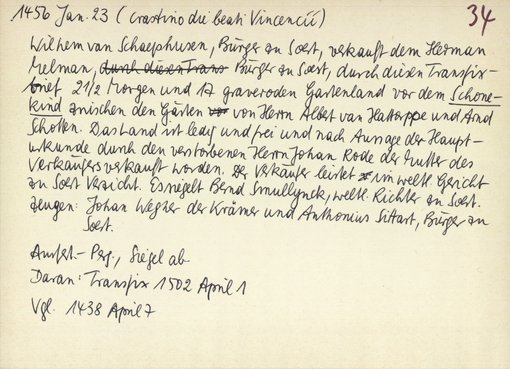 1456 Jan. 23 (crastino die beati Vincencii)
34
Wilhelm van Schaephusen, Bürger zu Soest, verkauft dem Herman
Melman, durch diesen Trans Bürger zu Soest, durch diesen Transfix-
brief 2 1/2 Morgen und 17 graveroden Gartenland vor dem Schone-
kind zwischen den Gärten von Herrn Albet van Hattorppe und Arnd
Schotten. Das Land ist ledig und frei und nach Aussage der Haupt-
urkunde durch den verstorbenen Herrn Johan Rode der Mutter des
Verkäufers verkauft worden. Der Verkäufer leistet im weltl. Gericht
zu Soest Verzicht. Es siegelt Bernd Smullynck, weltl. Richter zu Soest.
Zeugen: Johan Wegher der Krämer und Anthonius Sittart, Bürger zu
Soest.
Ausfert.- Perg., Siegel ab.
Daran: Transfix 1502 April 1
Vgl. 1438 April 7